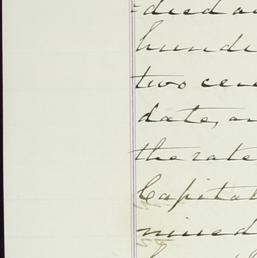 =dred a
hundr
two cen
date, an
the rate
Capital
mined